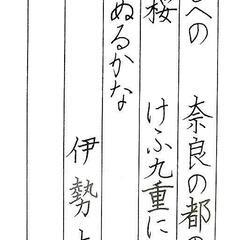 への　奈良の都の
桜　けふ九重に
ぬるかな
伊勢